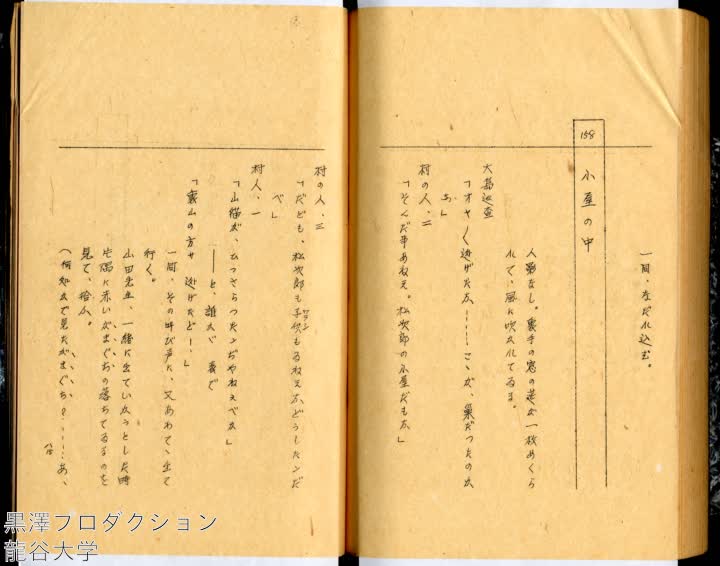 一同、なだれ込む。
158
小屋の中
人影なし。裏手の窓の莚が一枚めくら
れて、風に吹かれてゐる。
大野巡査
「オヤ〳〵逃げたか……こゝが、巣だつたのか
な」
村の人、二
「そんだ事あねえ。松次郎の小屋だもな」
村の人、三
「だども、松次郎も子供もゐねえが、どうしたンだ
べ」
村人、一
「山猫が、ひつさらつたンぢやねえべか」
――と、誰かゞ 表で
「裏山の方サ 逃げたどー、」
一同、その叫び声に、又あわてゝ出て
行く。
山田先生、一緒に出ていかうとした時
片隅に赤いがまぐちの落ちてゐるのを
見て、拾ふ。
(何処かで見たがまぐち?……あ、
黒澤プロダクション
龍谷大学